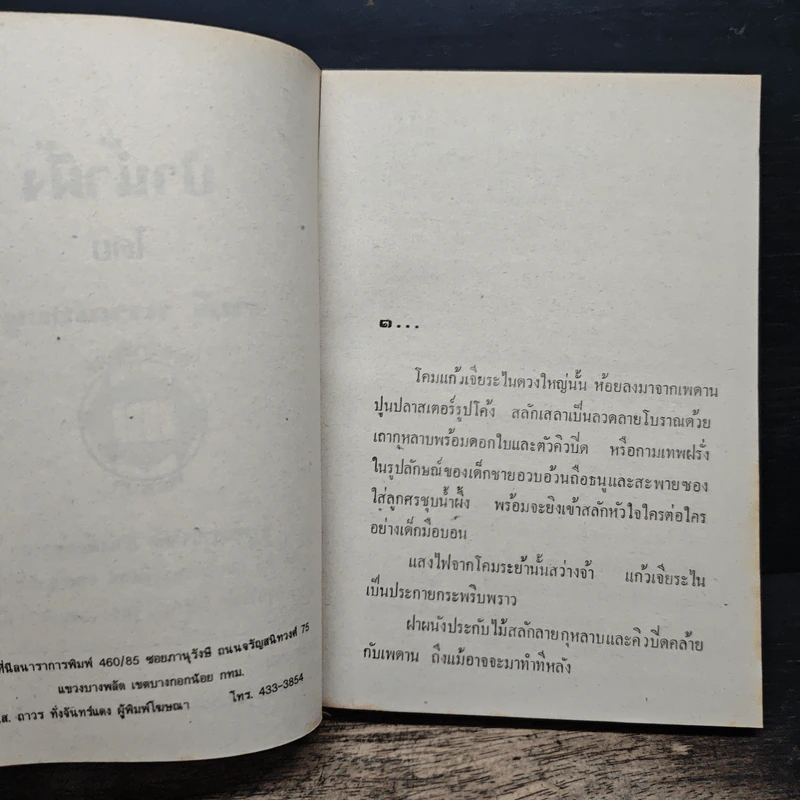 ที่นีลนาราการพิมพ์ 460/85 ซอยภานุรังษี ถนนจรัญสนิทวงศ์ 75
แขวงบางพลัด เขตบางกอกน้อย กทม.
ส. ถาวร ทั่งจันทร์แดง ผู้พิมพ์โฆษณา โทร. 433-3854
๑...
โคมแก้วเจียระไนดวงใหญ่นั้น ห้อยลงมาจากเพดาน
ปูนปลาสเตอร์รูปโค้ง สลักเสลาเป็นลวดลายโบราณด้วย
เถากุหลาบพร้อมดอกใบและตัวคิวปี๊ด หรือกามเทพฝรั่ง
ในรูปลักษณ์ของเด็กชายอวบอ้วนถือธนูและสะพายซอง
ใส่ลูกศรชุบน้ำผึ้ง พร้อมจะยิงเข้าสลักหัวใจใครต่อใคร
อย่างเด็กมือบอน
แสงไฟจากโคมระย้านั้นสว่างจ้า แก้วเจียระไน
เป็นประกายกระพริบพราว
ฝาผนังประกับไม้สลักลายกุหลาบและคิวปี๊ดคล้าย
กับเพดาน ถึงแม้อาจจะมาทำทีหลัง